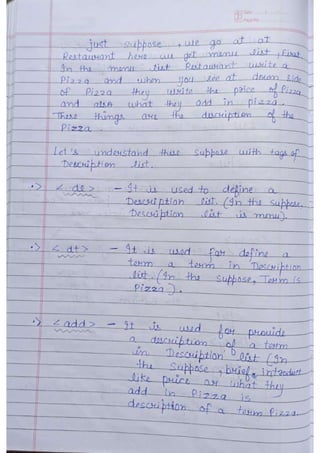 just suppose, we go at at
Restaurant here we get menu list, First
In the menu list Restaurant write a
Pizza and when you see at down side
of Pizza they write the price of Pizza
and also what they add in pizza.
These things are the description of the
Pizza.
Let's understand these suppose with tags of
Description list.
•> < dl > - It is used to define a
Description list. (In the suppose,
Description list is menu).
•> < dt > - It is used for define a
term a term in Description
list. (In the suppose, Term is
Pizza).
•> < add > - It is used for provide
a description of a term
in Description list (In
the suppose, brief, introduce
like price or what they
add in Pizza is
description of a term Pizza.